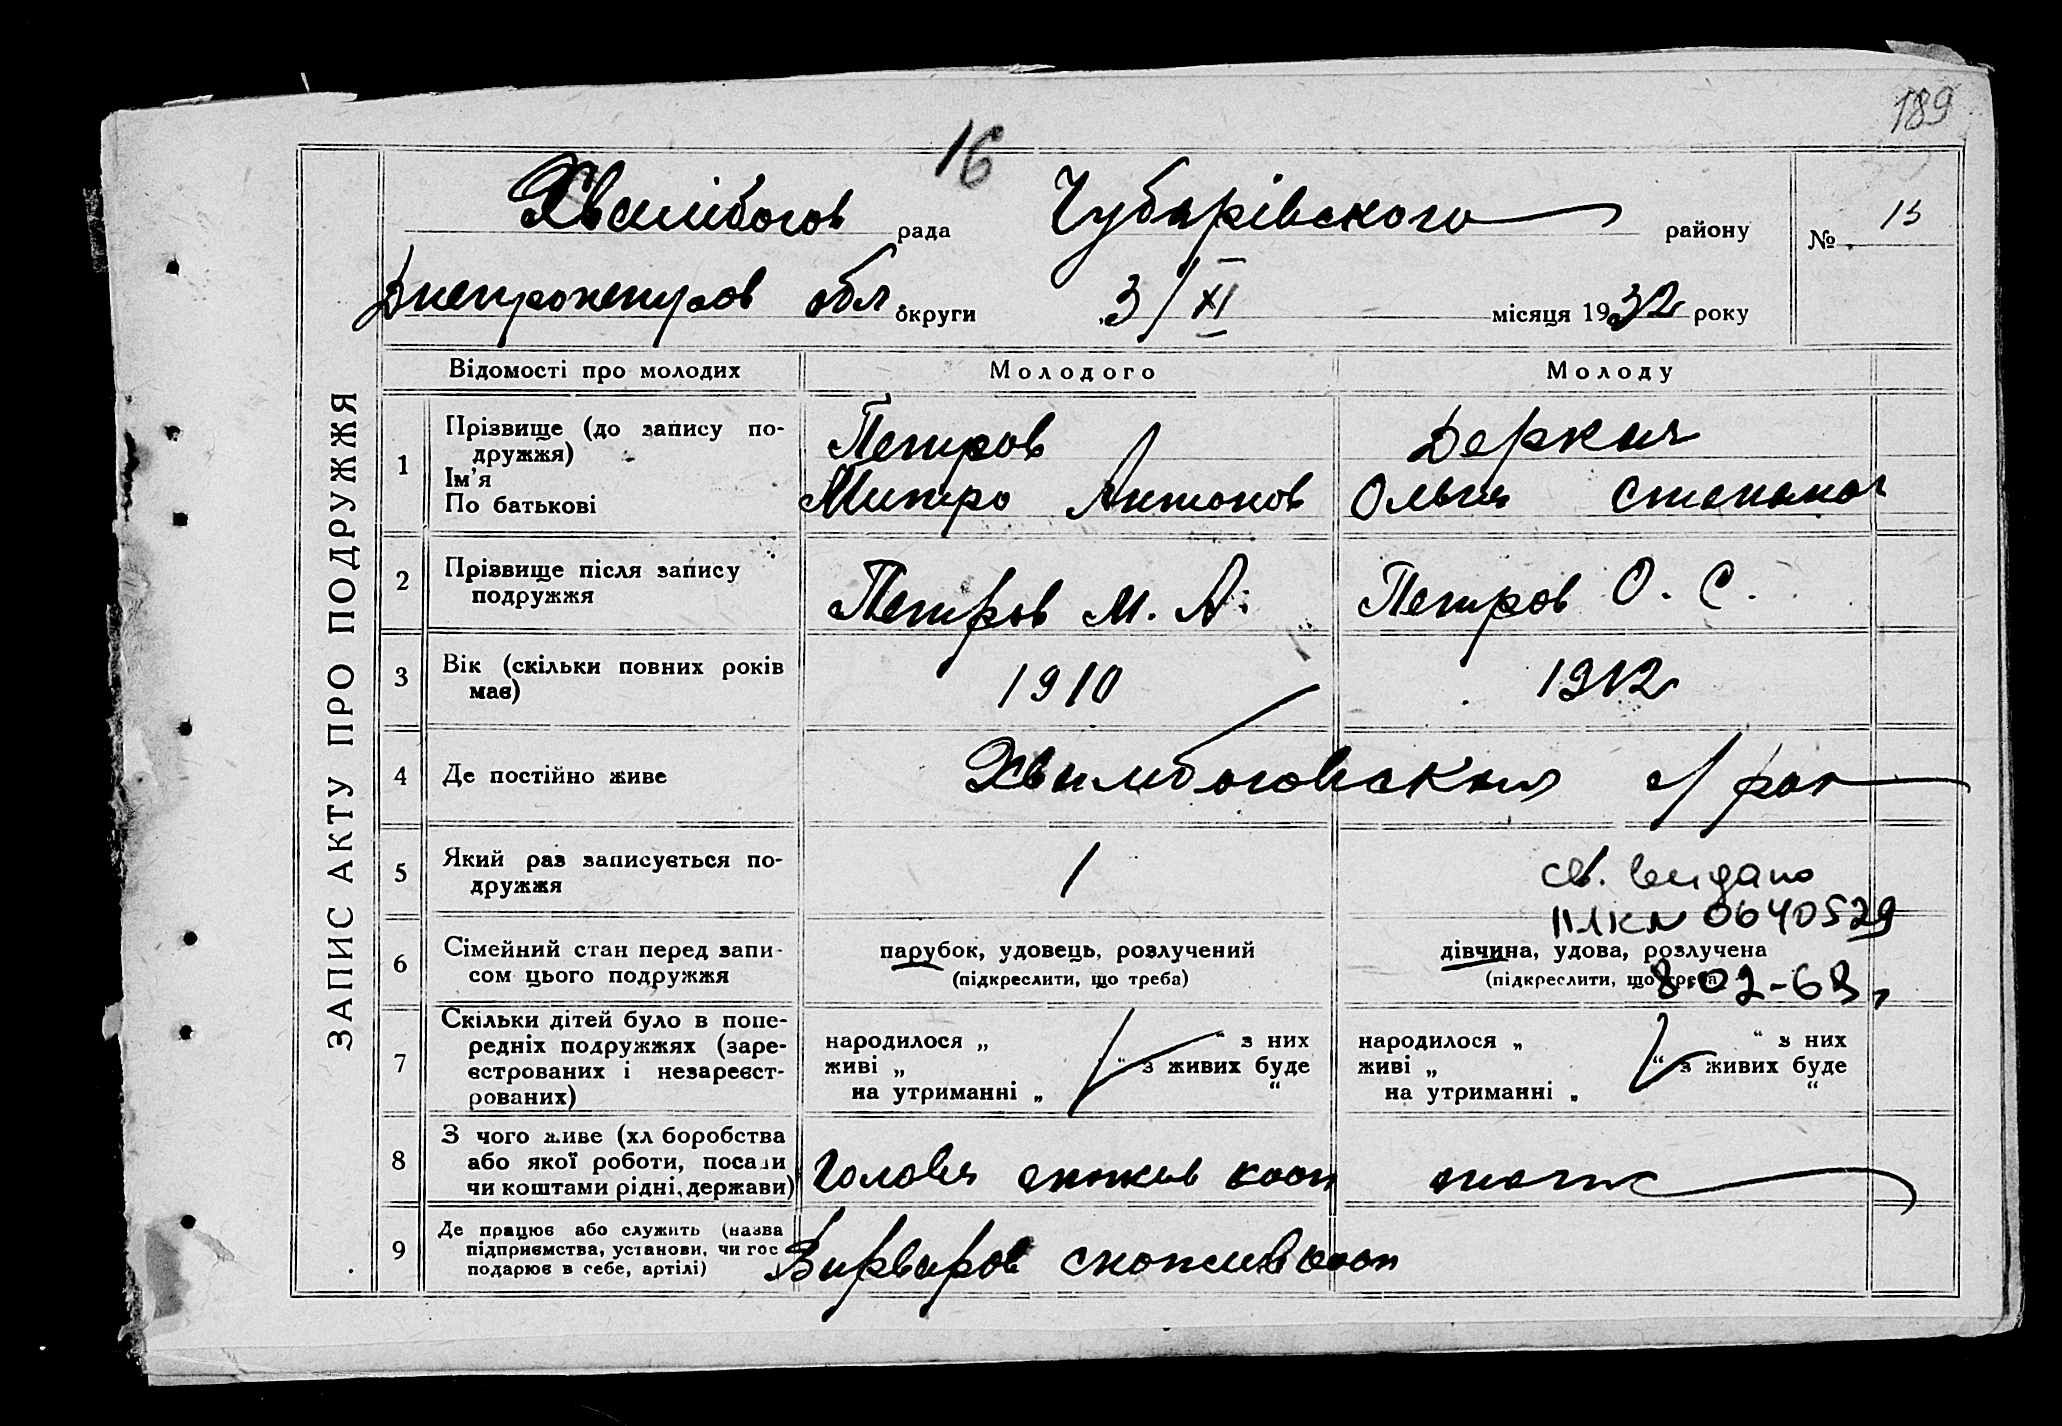 189
16
Хвалібогов рада Чубарівського району № 15
Днепропетров обл округи 3/XI місяця 1932 року
ЗАПИС АКТУ ПРО ПОДРУЖЖЯ
Відомості про молодих Молодого Молоду
1 Прізвище (до запису по-
дружжя)
Ім'я
По батькові
Петров
Митро Антонов
Деркач
Ольга Степанов
2 Прізвище після запису
подружжя
Петров М. А.
Петров О. С.
3 Вік (скільки повних років
має)
1910
1912
4 Де постійно живе
Хвалибоговская с/рад
5 Який раз записується по-
дружжя
1
св. видано
ІІЛК № 0640529
8-02-68,
6 Сімейний стан перед запи-
сом цього подружжя
парубок, удовець, розлучений
(підкреслити, що треба)
дівчина, удова, розлучена
(підкреслити, що треба)
7 Скільки дітей було в попе-
редніх подружжях (заре-
єстрованих і незареєст-
рованих)
народилося „ “ з них
живі „ “ з живих буде
на утриманні „ “
народилося „ “ з них
живі „ “ з живих буде
на утриманні „ “
8 З чого живе (хл боробства
або якої роботи, посади
чи коштами рідні, держави)
Голова спожив кооп
9 Де працює або служить (назва
підприємства, установи, чи гос
подарює в себе, артілі)
Варваров споживкооп